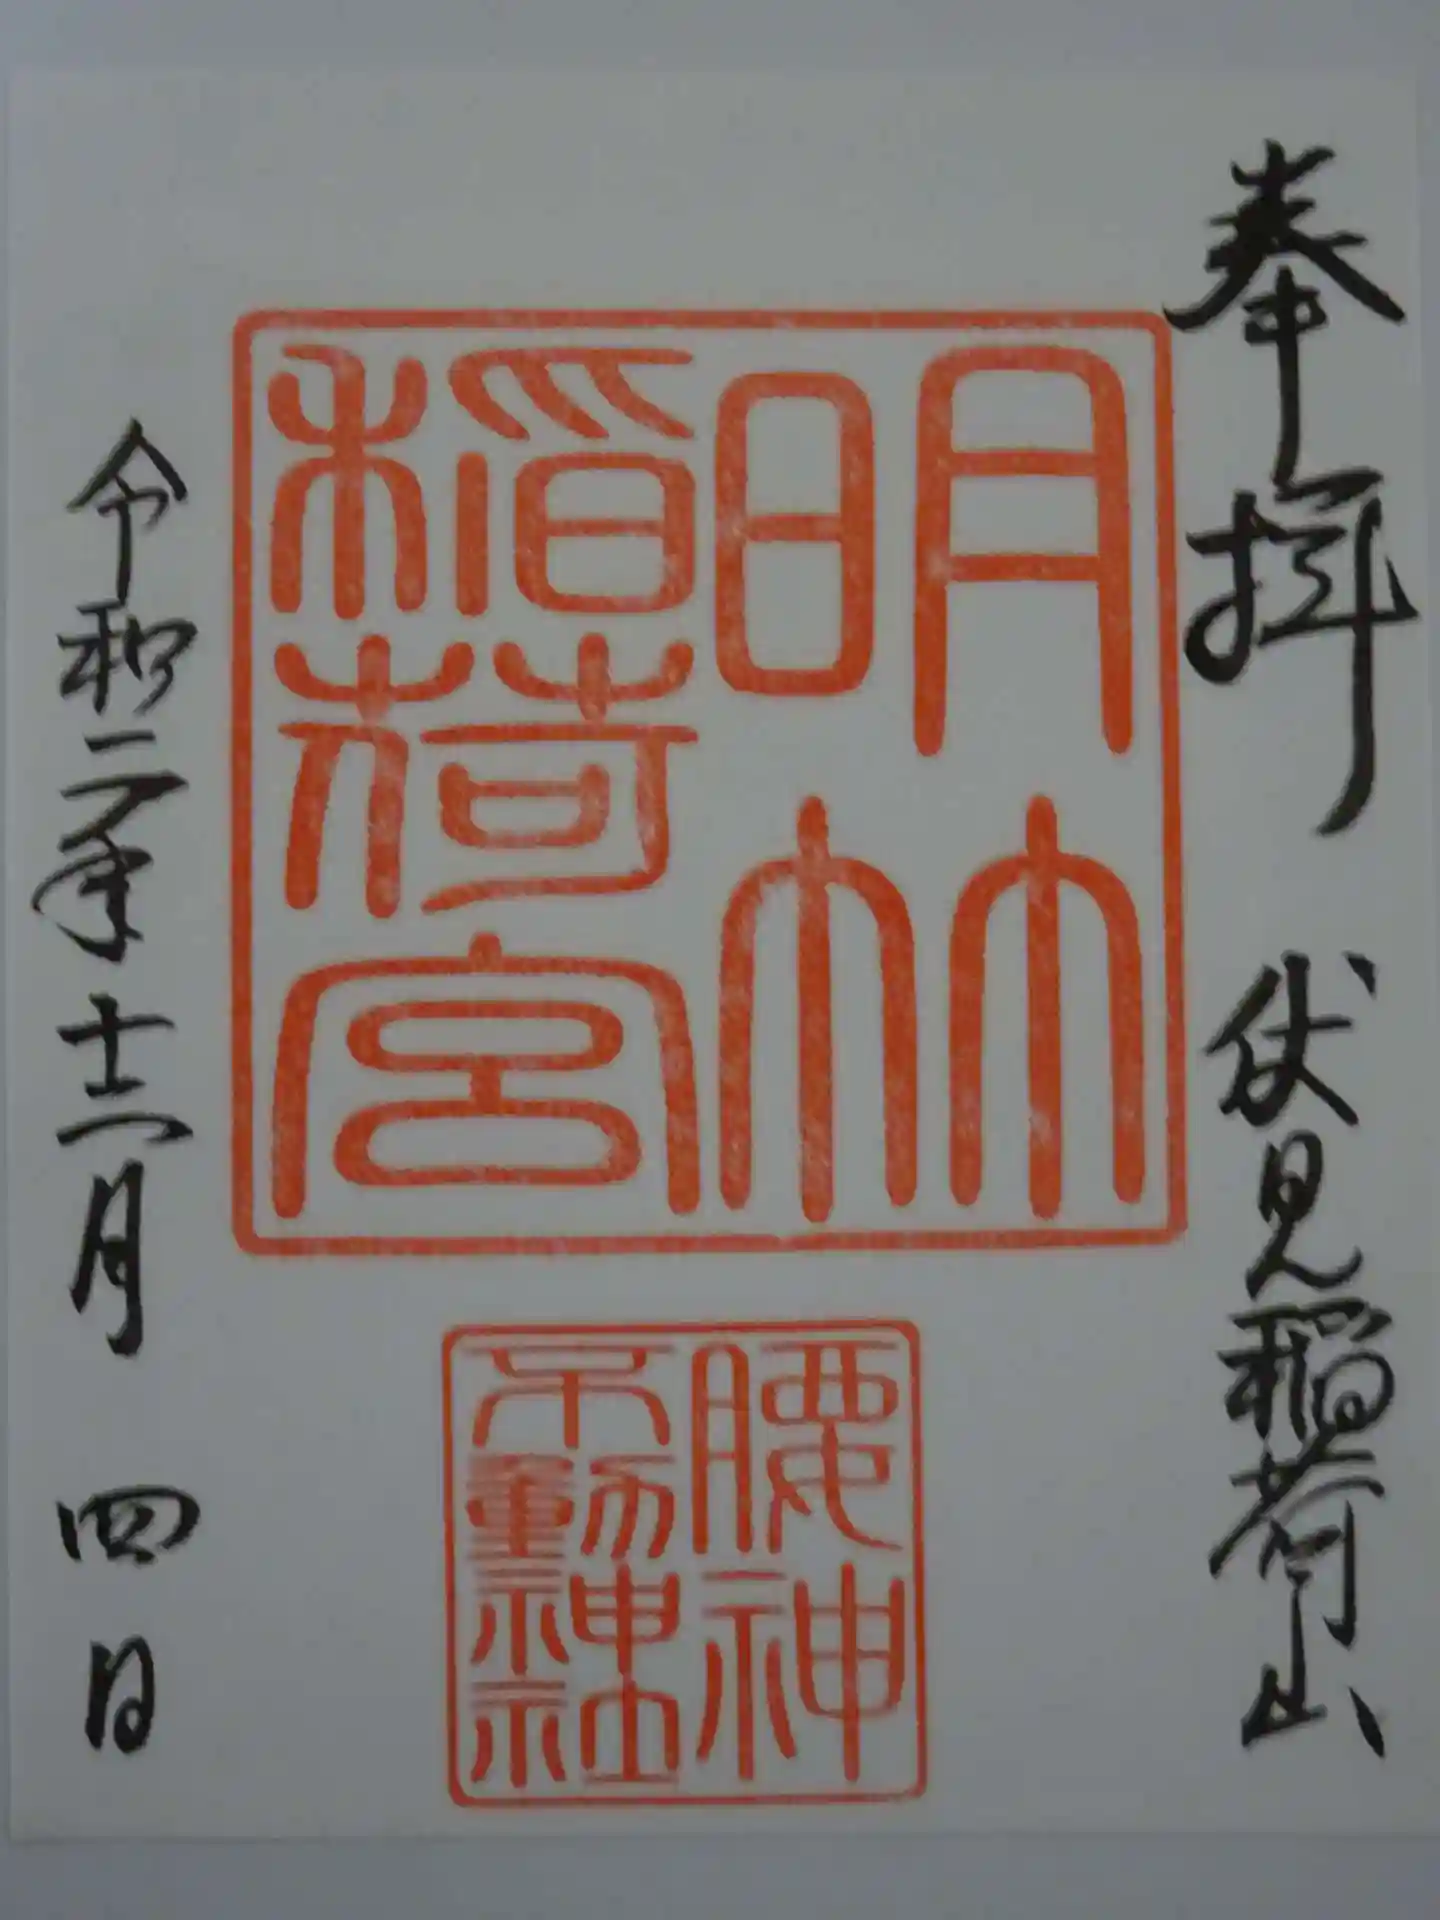 奉拝　伏見稲荷山
明竹
稲荷宮
腰神
不動神社
令和二年十二月　四日